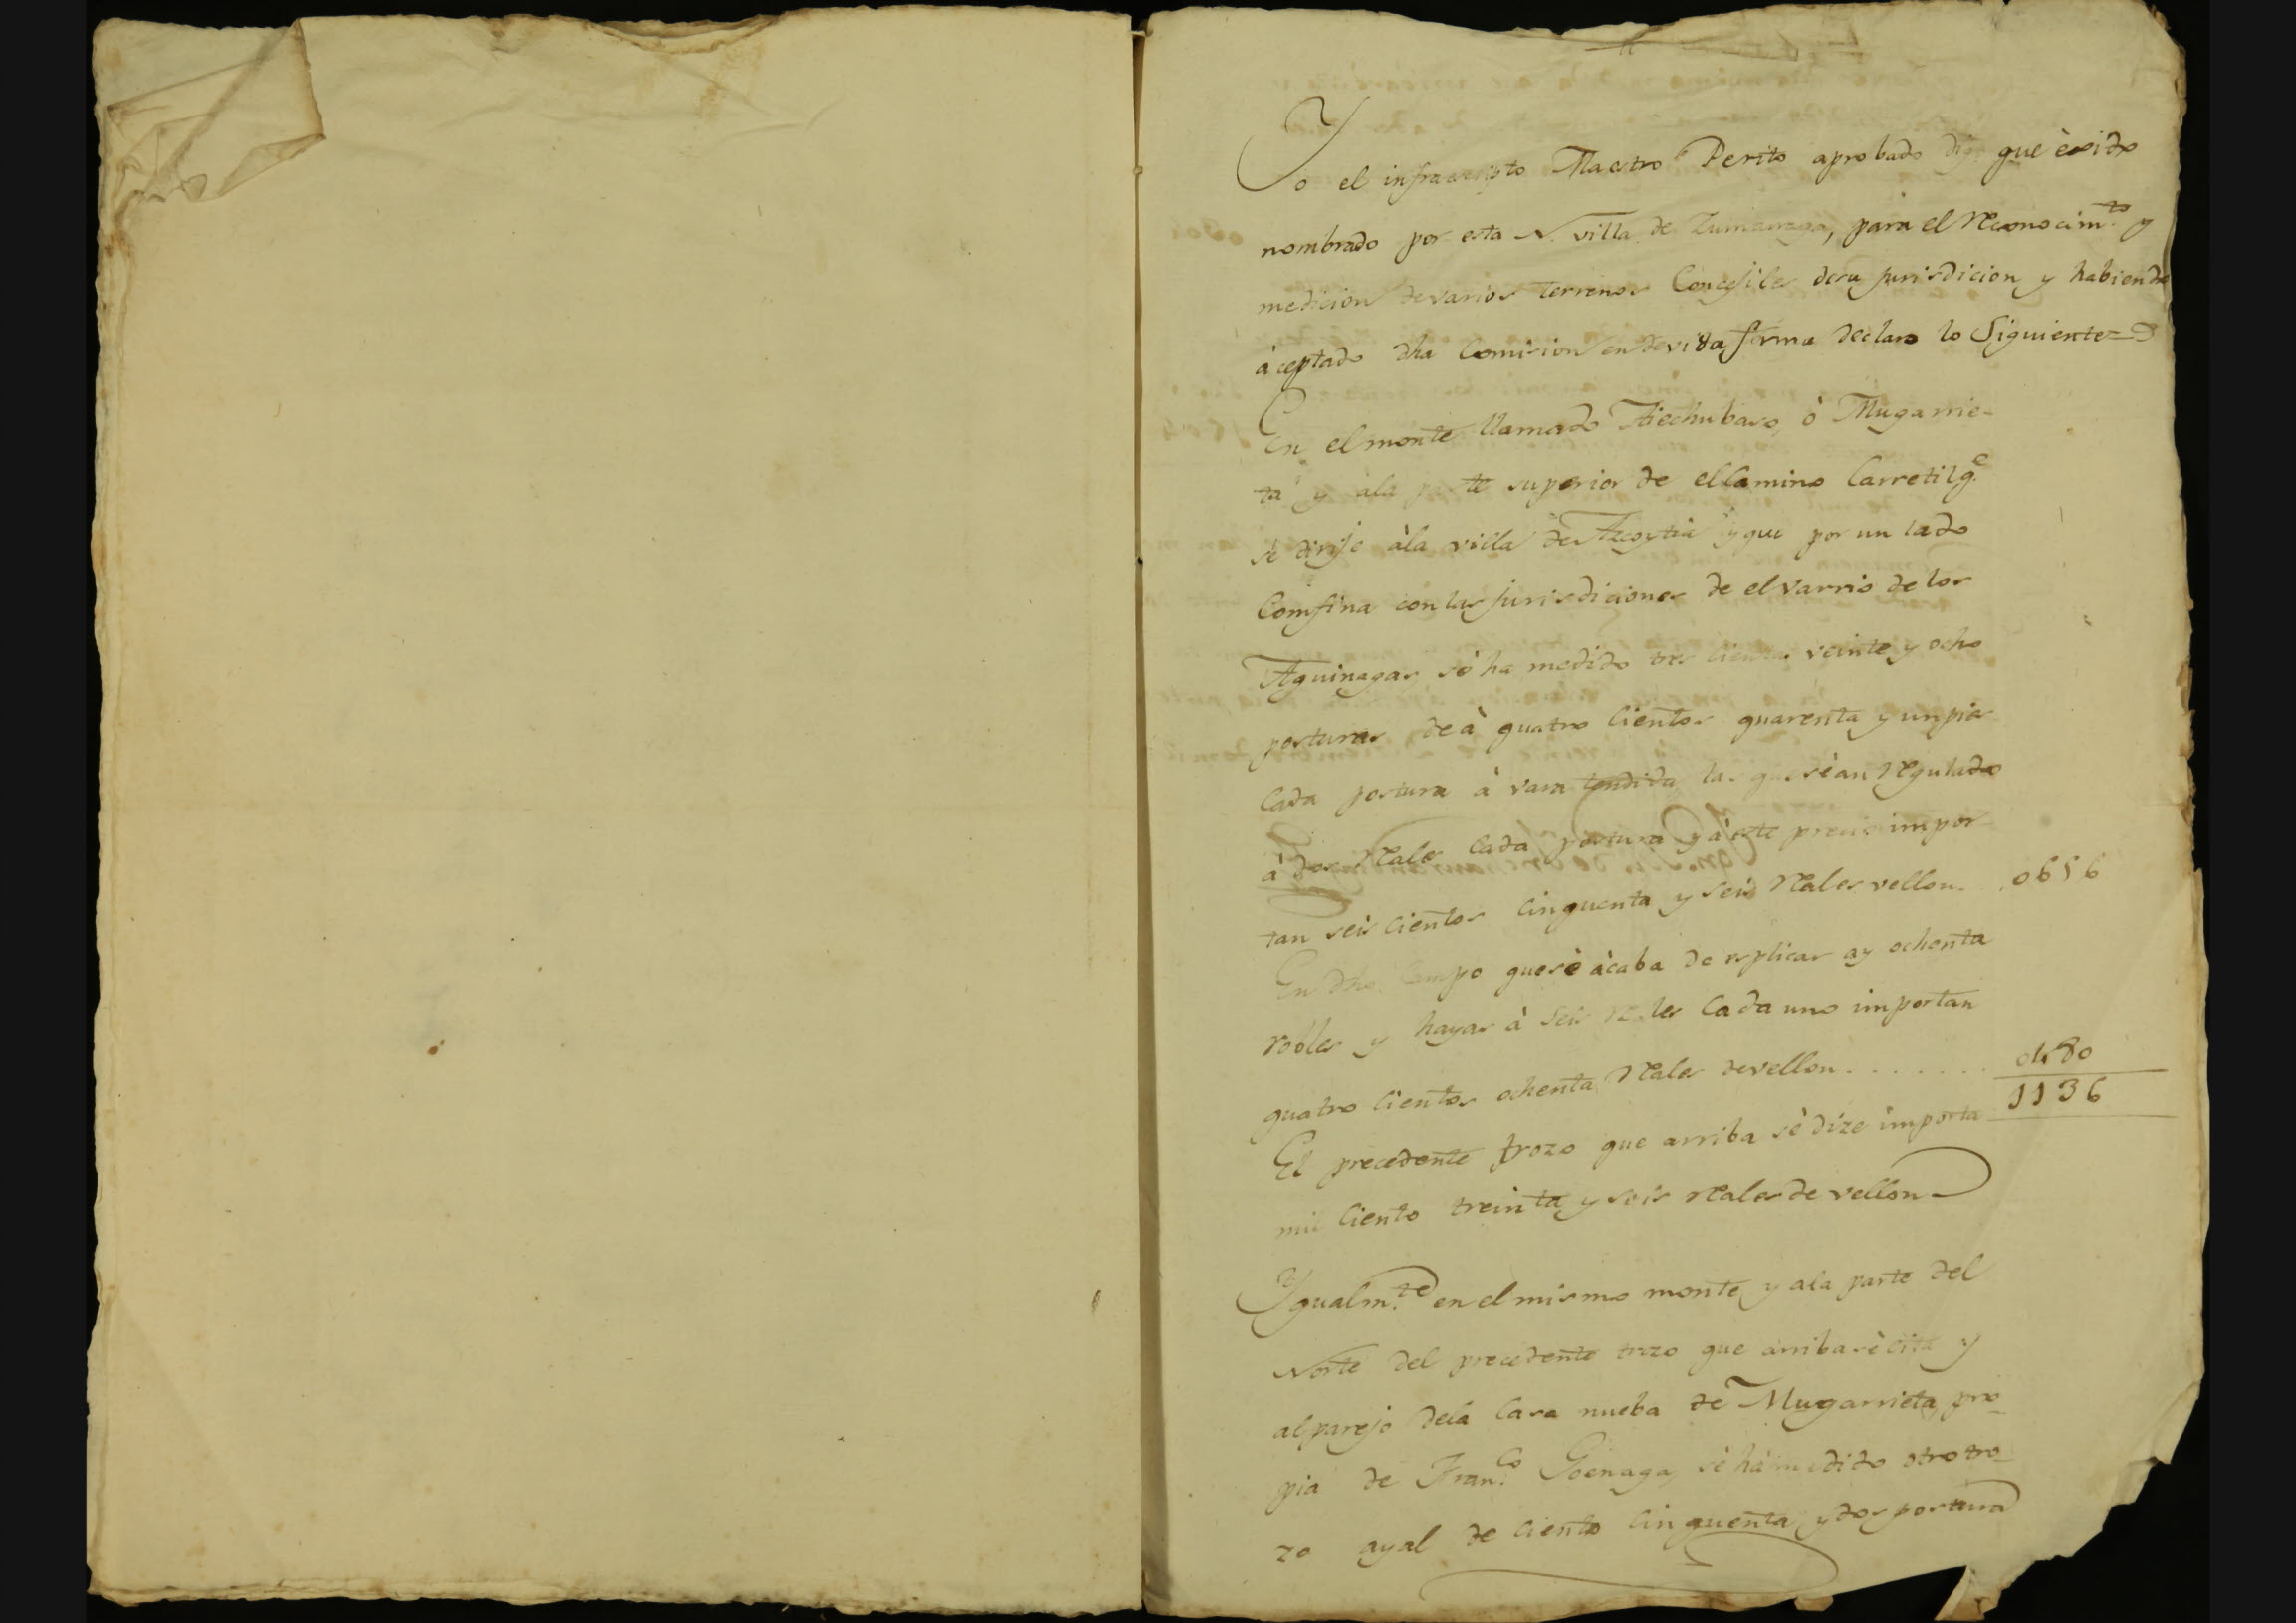 Yo el infraescripto Maestro Perito aprobado digo que è sido
nombrado por esta N. villa de Zumarraga, para el reconocim.to y
medicion de varios terrenos Concejiles de su jurisdicion y habiendo
àceptado dha Comision en devida forma declaro lo Siguiente=
En el monte llamado Atechubaso, ò Mugarrie-
ta y àla parte superior de el Camino Carretil q.e
se dirije àla villa de Azcoytia y que por un lado
Comfina con las jurisdiciones de el varrio de los
Aguinagas, sè ha medido tres cientos veinte y ocho
posturas de à quatro Cientos quarenta y un pies
Cada postura à vara tendida, las que sè an regulado
à dos reales Cada postura y à este precio impor-
tan seis Cientos Cinquenta y Seis reales vellon. 0656
En dho Campo que sè àcaba de esplicar ay ochenta
robles y hayas à Seis reales Cada uno importan
quatro Cientos ochenta reales de vellon . . . . . . . 0480
El precedente trozo que arriba sè dize importa 1136
mil Ciento treinta y seis reales de vellon
Ygualm.te en el mismo monte y ala parte del
Norte del precedente trozo que arriba sè cita y
al parejo dela Casa nueba de Mugarrieta, pro-
pia de Fran.co Goenaga, sè hà medido otro tro-
zo ayal de Ciento Cinquenta y dos posturas